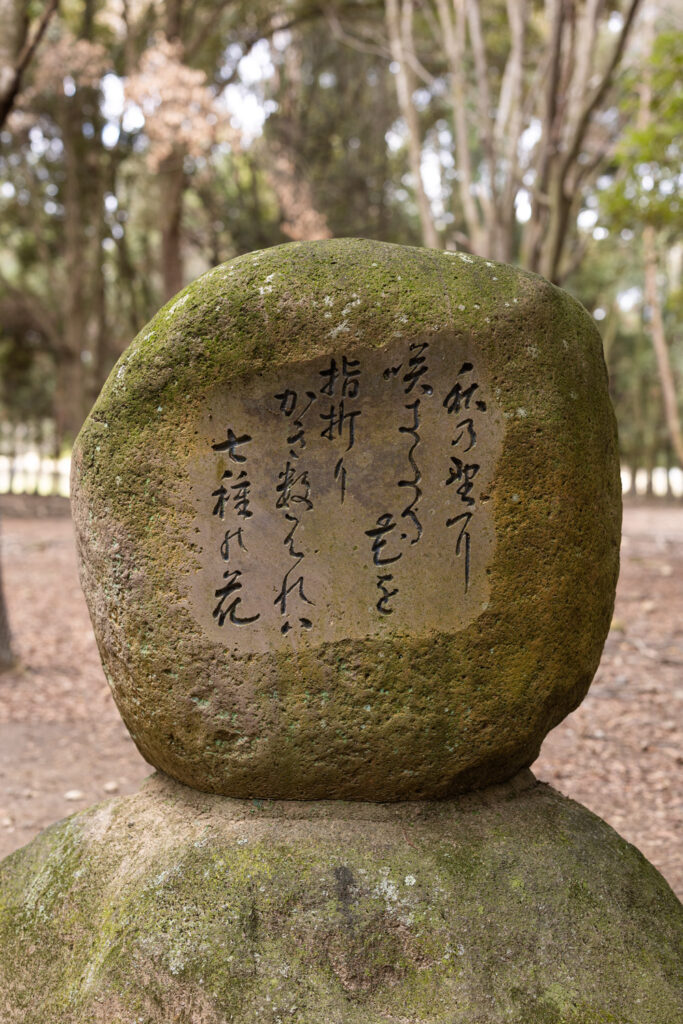 秋乃野尓
咲きたる花を
指折り
かき数ふれハ
七種の花